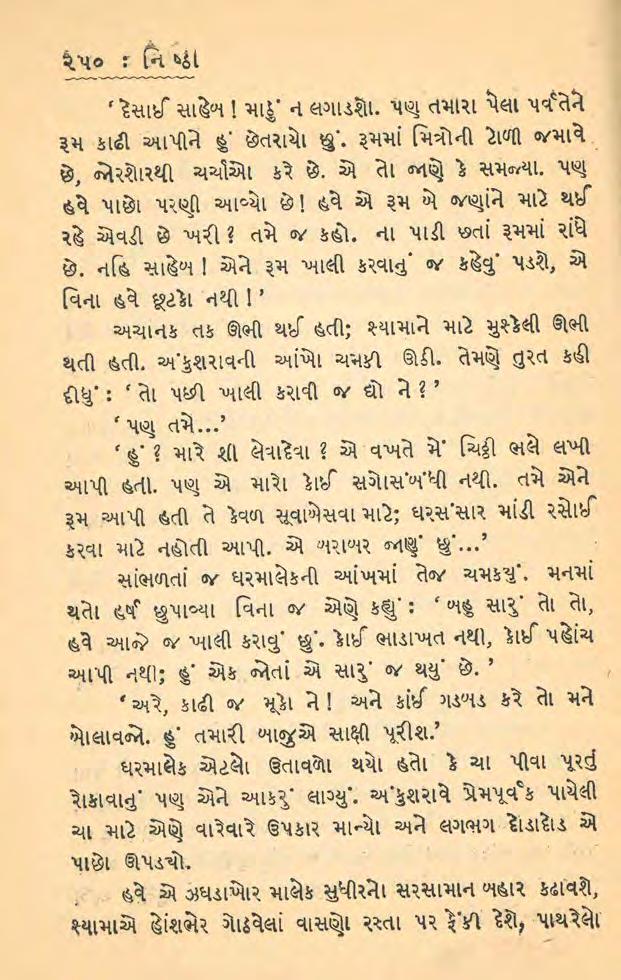 ૨૫૦ : નિષ્ઠા
‘દેસાઈ સાહેબ! માઠું ન લગાડશો. પણ તમારા પેલા પર્વતેને
રૂમ કાઢી આપીને હું છેતરાયો છું. રૂમમાં મિત્રોની ટોળી જમાવે
છે, જોરશોરથી ચર્ચાઓ કરે છે. એ તો જાણે કે સમજ્યા. પણ
હવે પાછો પરણી આવ્યો છે! હવે એ રૂમ બે જણાંને માટે થઈ
રહે એવડી છે ખરી? તમે જ કહો. ના પાડી છતાં રૂમમાં રાંધે
છે. નહિ સાહેબ! એને રૂમ ખાલી કરવાનું જ કહેવું પડશે, એ
વિના હવે છૂટકો નથી!’
અચાનક તક ઊભી થઈ હતી; શ્યામાને માટે મુશ્કેલી ઊભી
થતી હતી. અંકુશરાવની આંખો ચમકી ઊઠી. તેમણે તુરત કહી
દીધું: ‘તો પછી ખાલી કરાવી જ દ્યો ને?’
‘પણ તમે...’
‘હું? મારે શી લેવાદેવા? એ વખતે મેં ચિઠ્ઠી ભલે લખી
આપી હતી. પણ એ મારો કોઈ સગોસંબંધી નથી. તમે એને
રૂમ આપી હતી તે કેવળ સૂવાબેસવા માટે; ઘરસંસાર માંડી રસોઈ
કરવા માટે નહોતી આપી. એ બરાબર જાણું છું...’
સાંભળતાં જ ઘરમાલેકની આંખમાં તેજ ચમક્યું. મનમાં
થતો હર્ષ છુપાવ્યા વિના જ એણે કહ્યું: ‘બહુ સારું તો તો,
હવે આજે જ ખાલી કરાવું છું. કોઈ ભાડાખત નથી, કોઈ પહોંચ
આપી નથી; હું એક જોતાં એ સારું જ થયું છે.’
‘અરે, કાઢી જ મૂકો ને! અને કાંઈ ગડબડ કરે તો મને
બોલાવજો. હું તમારી બાજુએ સાક્ષી પૂરીશ.’
ઘરમાલેક એટલો ઉતાવળો થયો હતો કે ચા પીવા પૂરતું
રોકાવાનું પણ એને આકરું લાગ્યું. અંકુશરાવે પ્રેમપૂર્વક પાયેલી
ચા માટે એણે વારેવારે ઉપકાર માન્યો અને લગભગ દોડાદોડ એ
પાછો ઊપડ્યો.
હવે એ ઝઘડાખોર માલેક સુધીરનો સરસામાન બહાર કઢાવશે,
શ્યામાએ હોંશભેર ગોઠવેલાં વાસણો રસ્તા પર ફેંકી દેશે, પાથરેલો